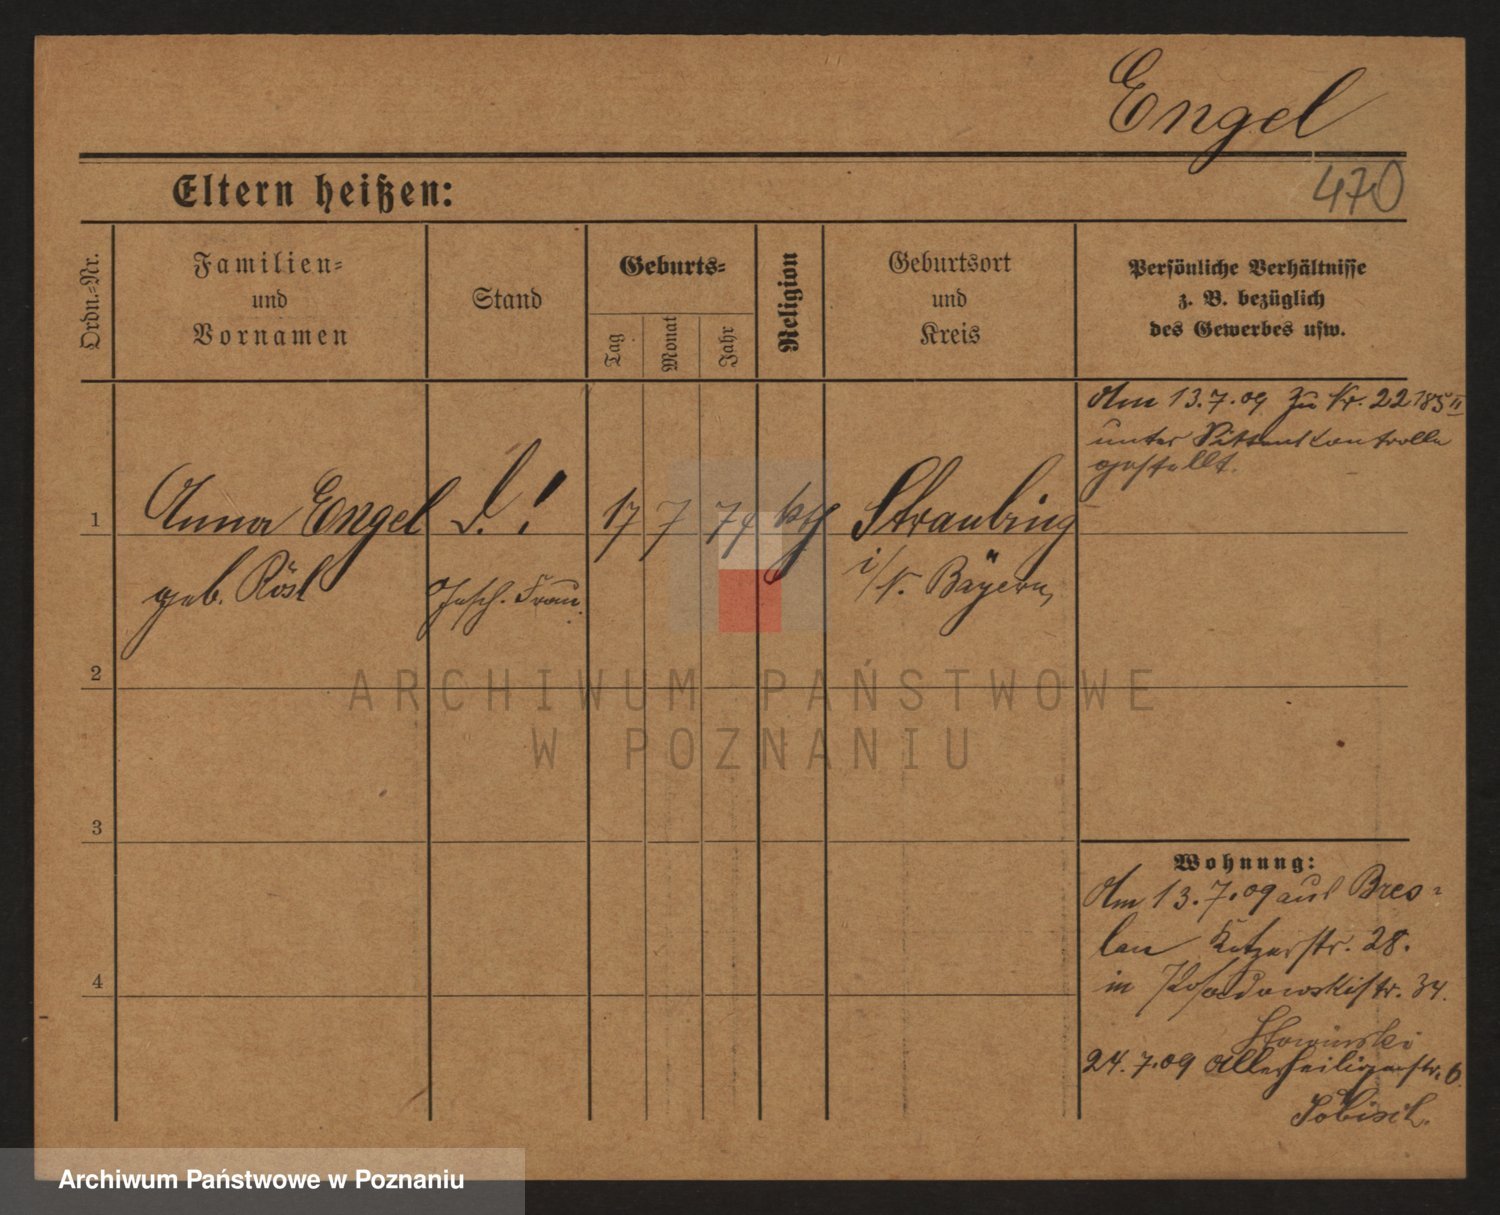 Engel
470
Eltern heißen:
Ordn.-Nr.
Familien-
und
Vornamen
Stand
Geburts-
Tag
Monat
Jahr
Religion
Geburtsort
und
Kreis
Persönliche Verhältnisse
z. B. bezüglich
des Gewerbes usw.
Am 13.7.09 zu Nr. 22185 II
unter Sittenkontrolle
gestellt.
1
Anna Engel
geb. Rösl
S.!
gesch. Frau.
17
7
74
kth
Straubing
i/N. Bayern,
2
3
4
ARCHIWUM PAŃSTWOWE
W POZNANIU
Wohnung:
Am 13.7.09 aus Bres-
lau str. 28.
in Posadowskistr. 34.
24.7.09 Allerheiligenstr. 6.
Archiwum Państwowe w Poznaniu